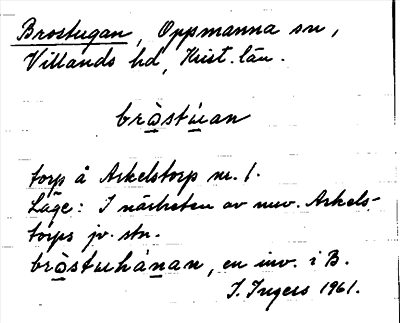 Brostugan, Oppmanna sn,
Villands hd, Krist. län.
bròstúan
torp å Arkelstorp nr. 1.
Läge: I närheten av nuv. Arkels-
torps jv. stn.
bròstuhánan, en inv. i B.
I. Ingers 1961.